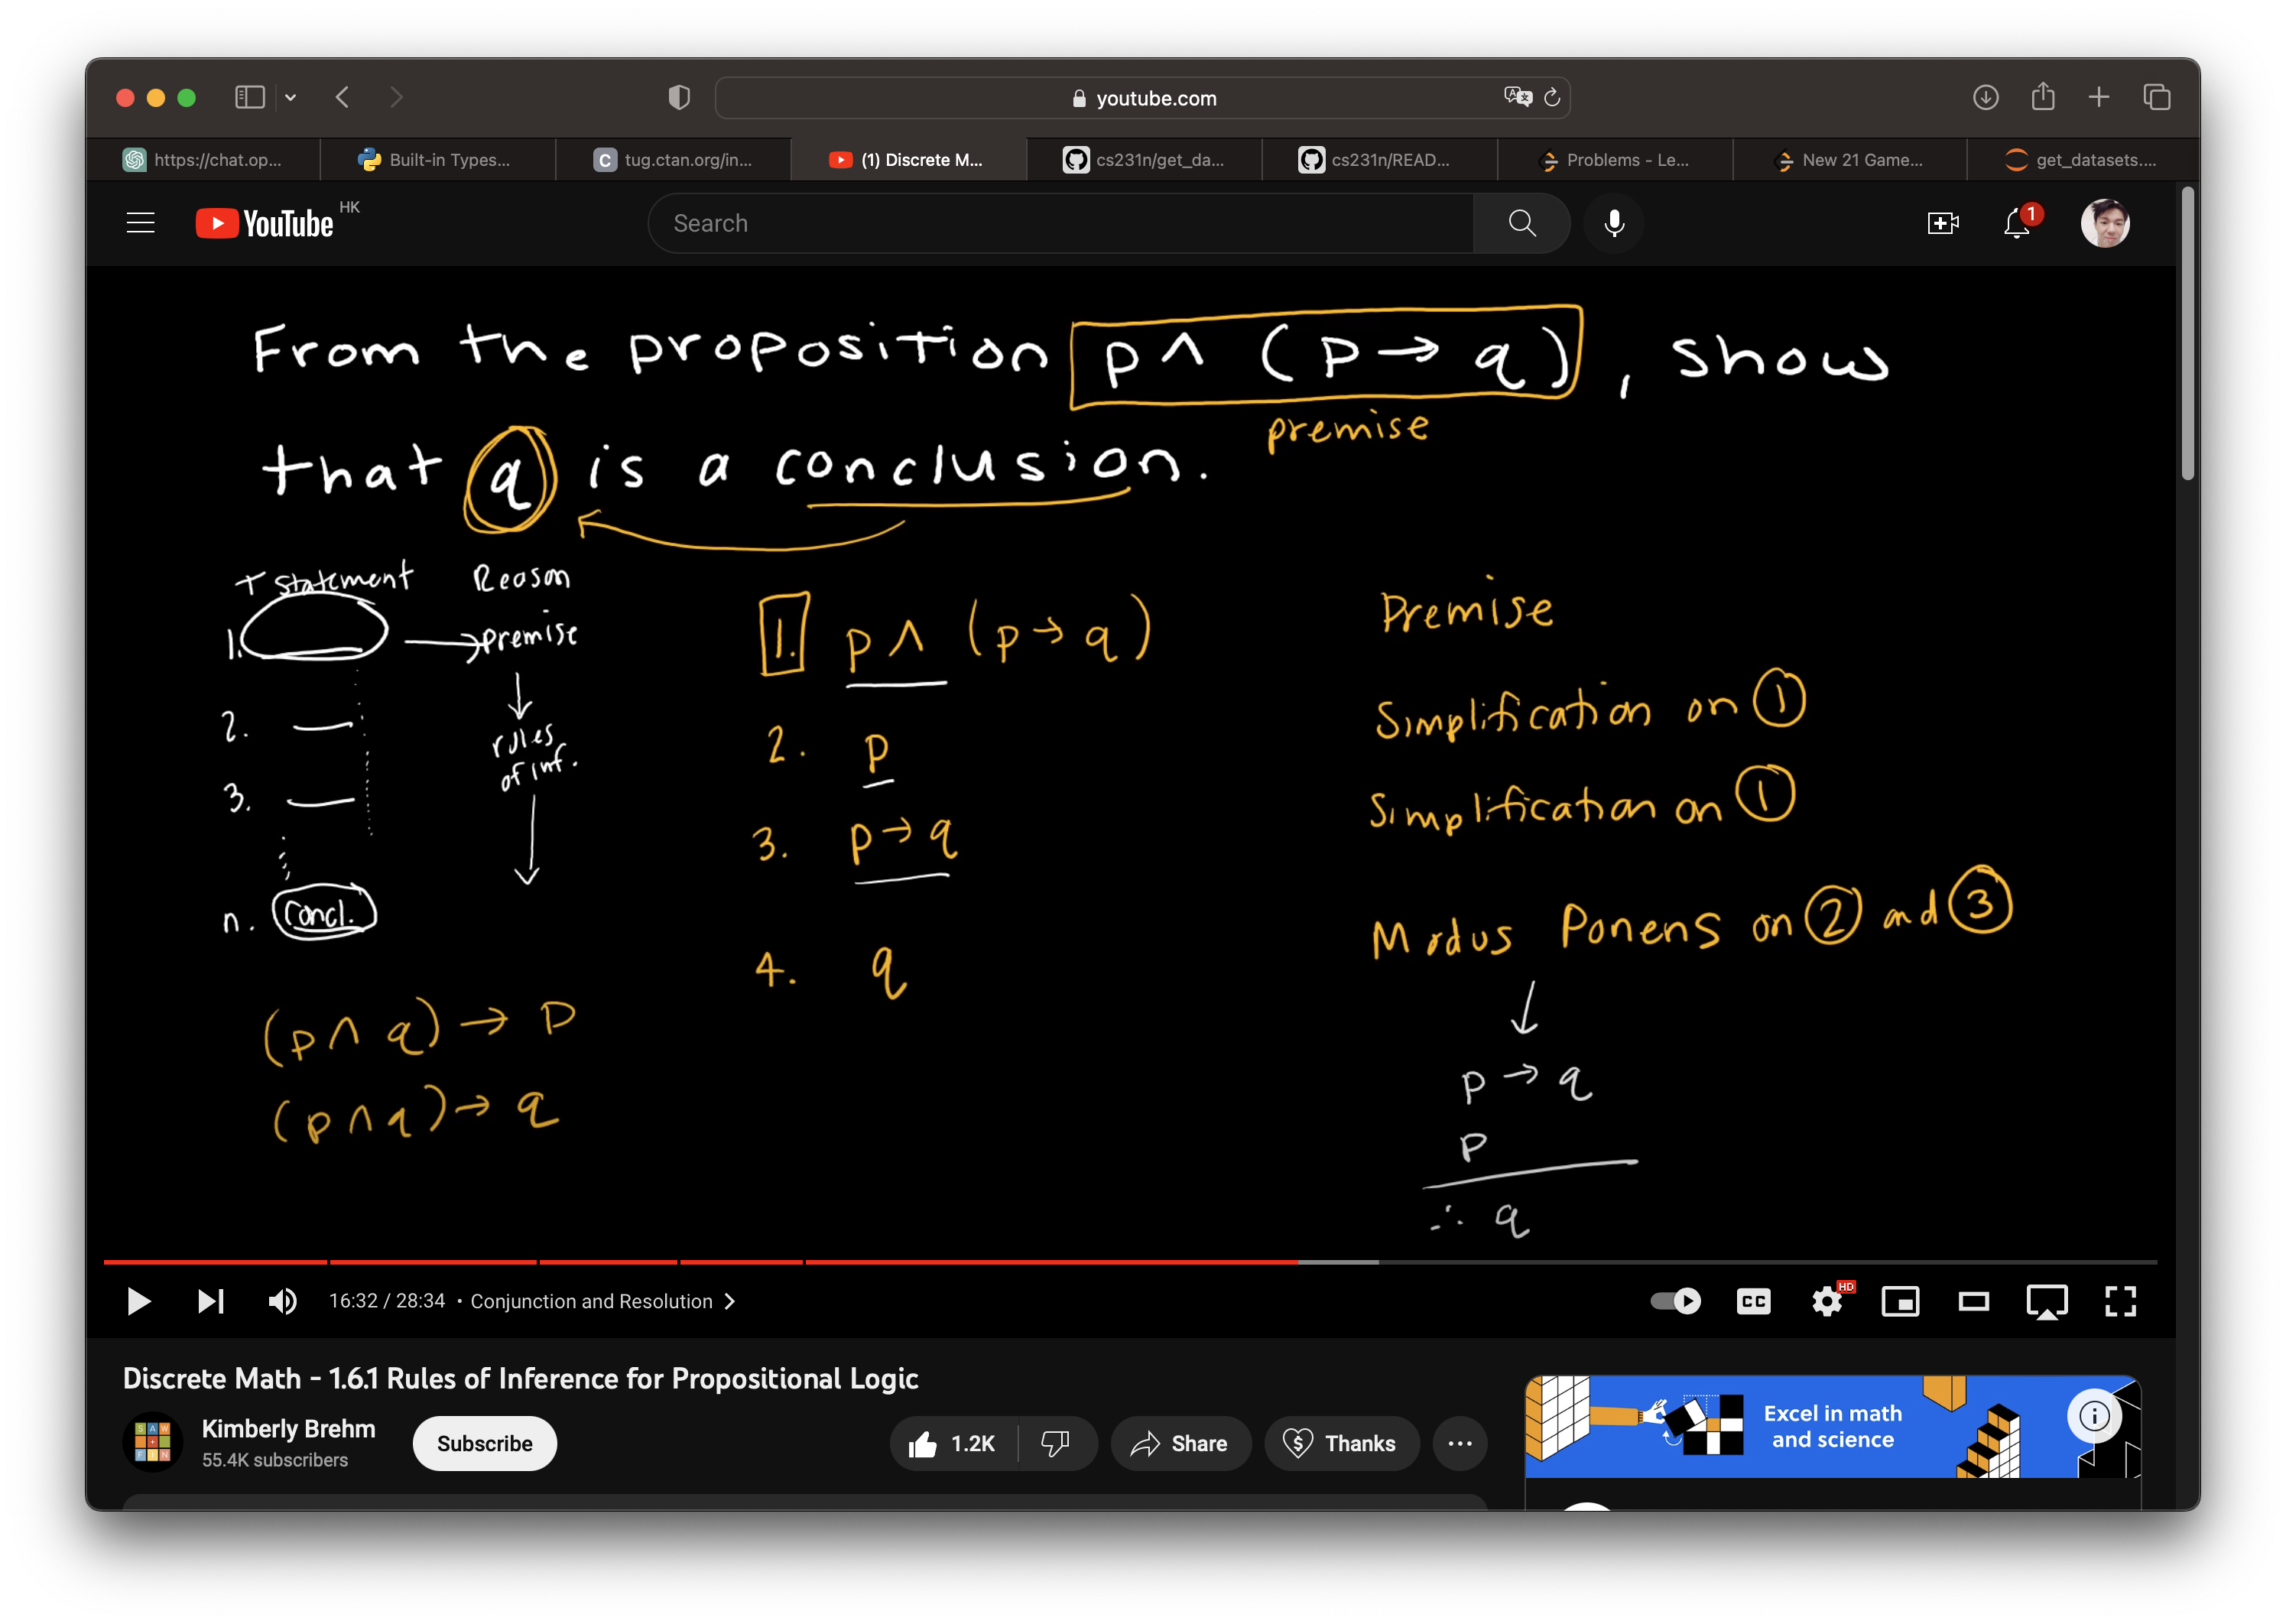 youtube.com
https://chat.op...
Built-in Types...
C tug.ctan.org/in...
(1) Discrete M...
cs231n/get_da...
cs231n/READ...
Problems - Le...
New 21 Game...
get_datasets....
YouTube HK
Search
1
From the proposition p ∧ (p → q), show
premise
that q is a conclusion.
T statement Reason
1. → premise
2.
rules
of inf.
3.
n. Concl.
(p ∧ q) → p
(p ∧ q) → q
1. p ∧ (p → q) Premise
2. p Simplification on ①
3. p → q Simplification on ①
4. q Modus Ponens on ② and ③
p → q
p
∴ q
16:32 / 28:34 • Conjunction and Resolution
CC
HD
Discrete Math - 1.6.1 Rules of Inference for Propositional Logic
Kimberly Brehm
55.4K subscribers
Subscribe
1.2K
Share
Thanks
Excel in math
and science